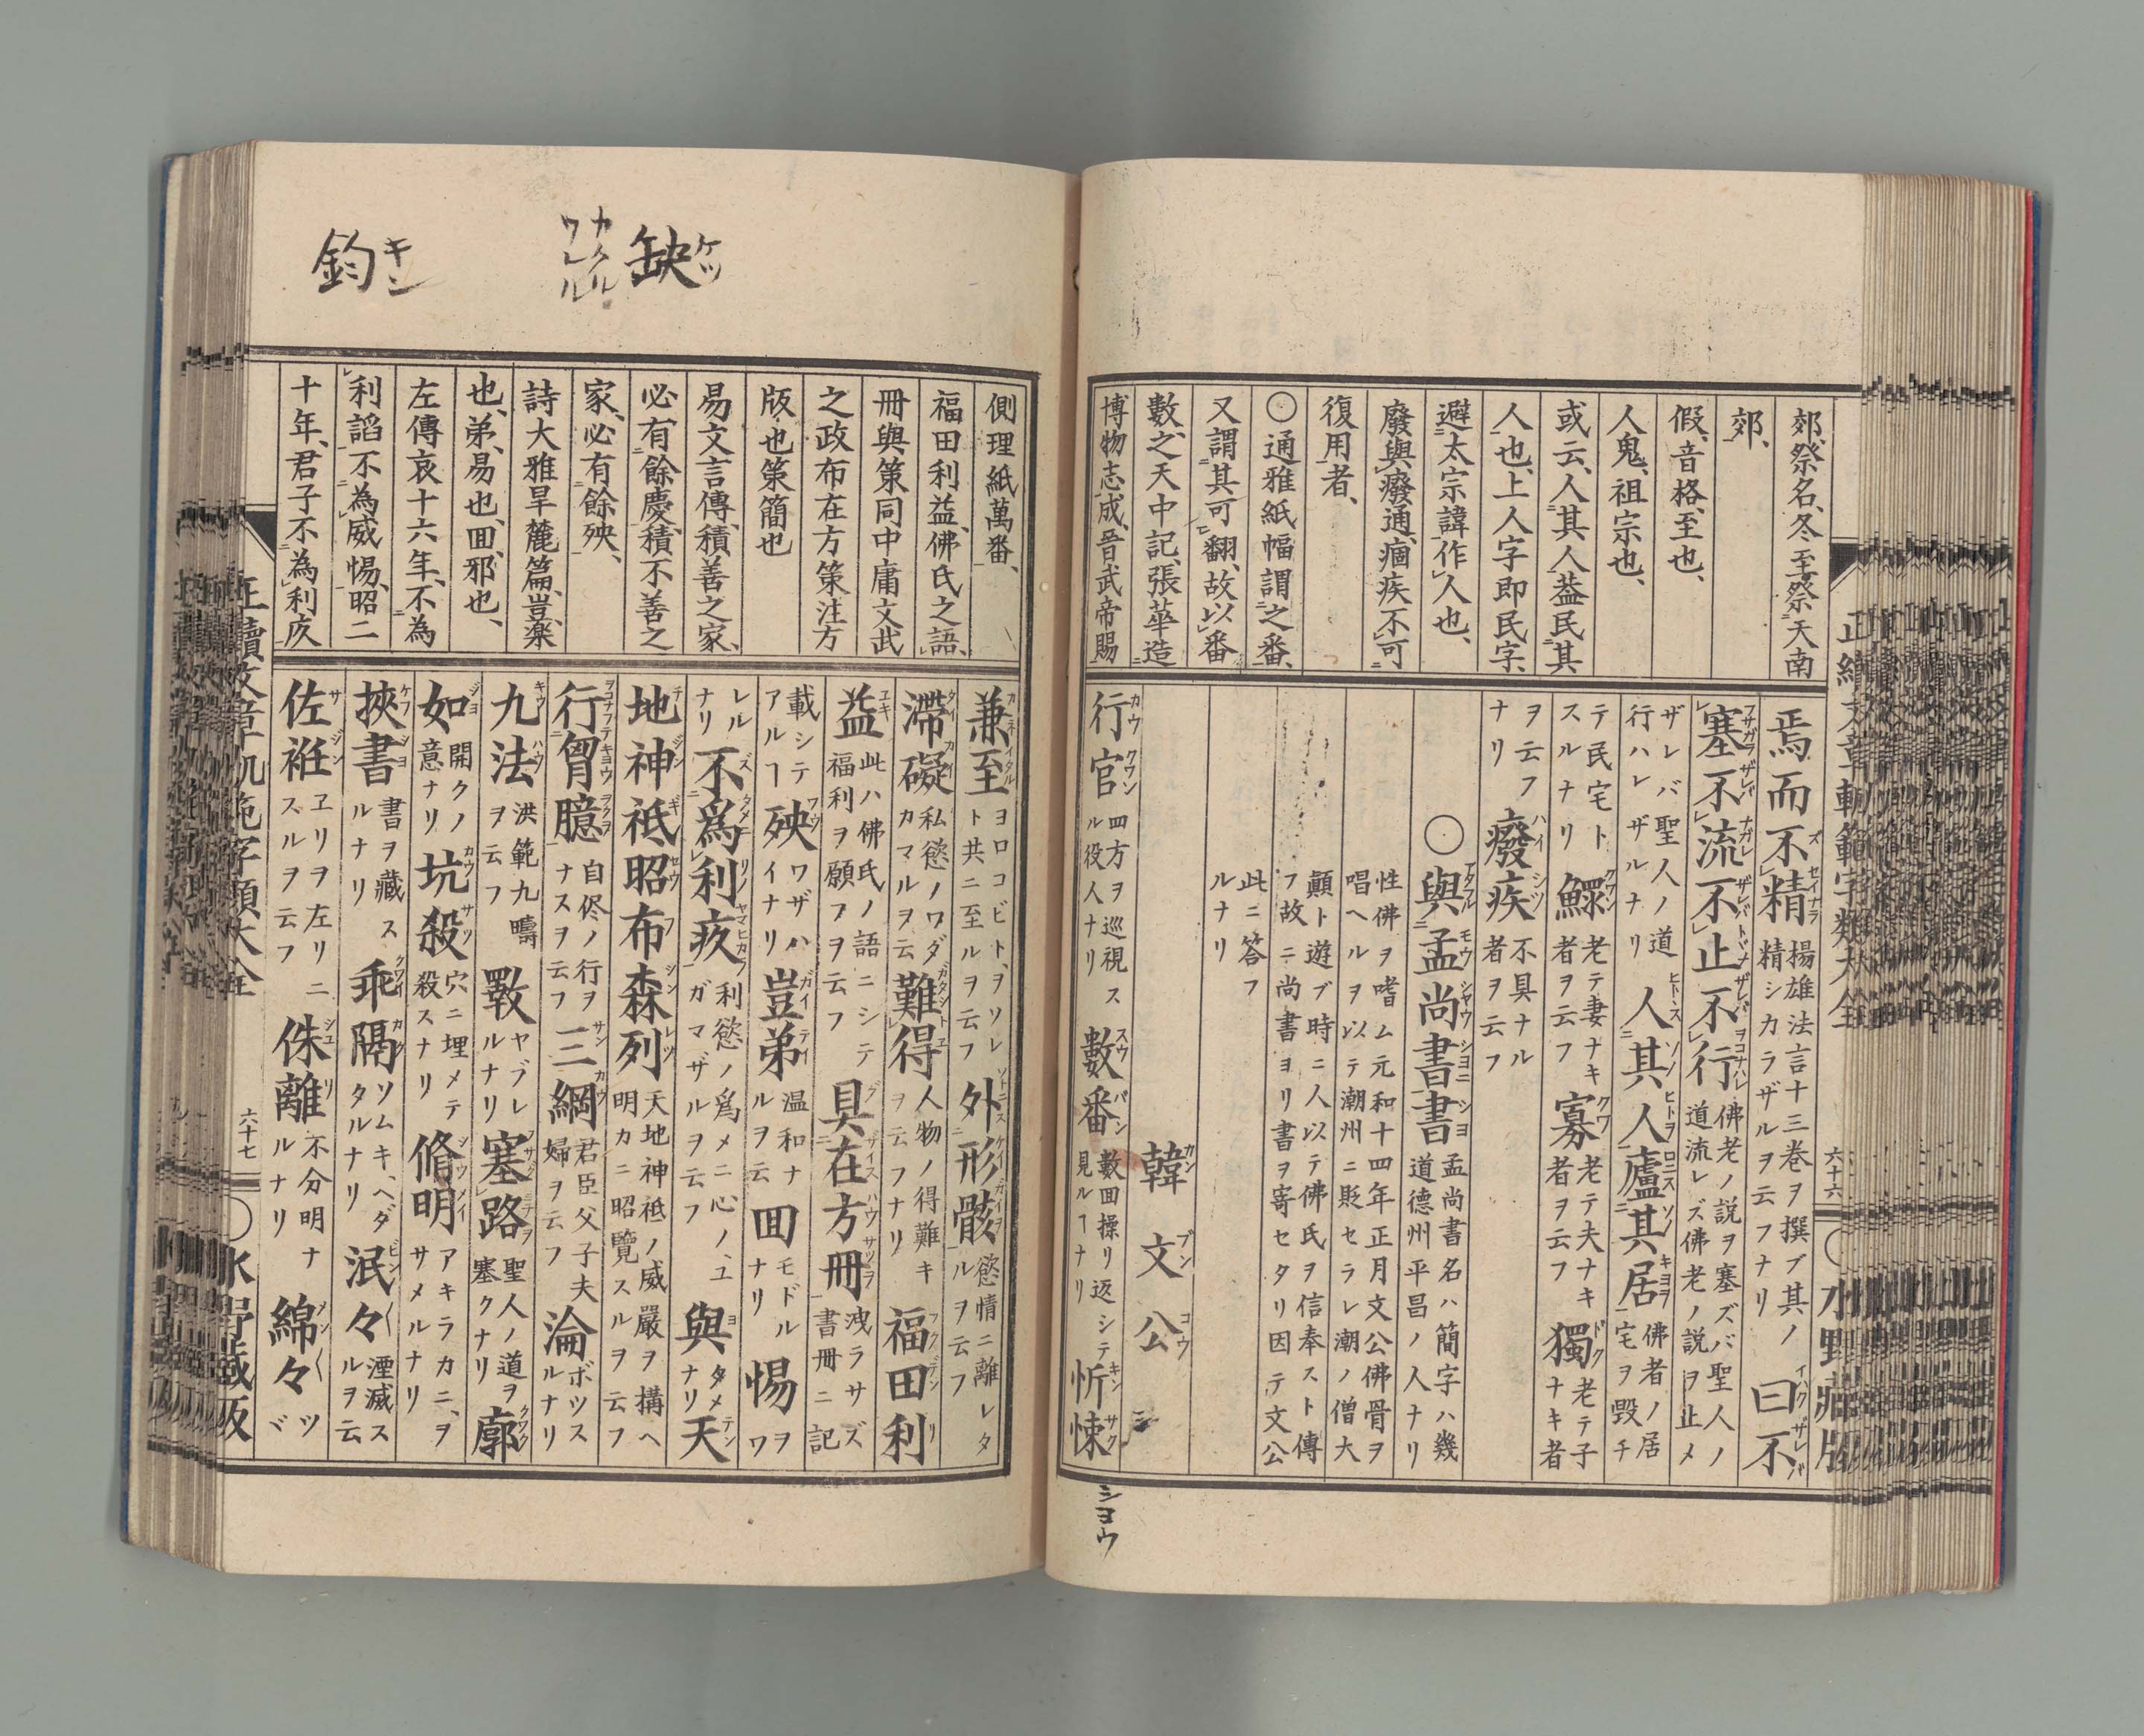 正續文章軌範字類大全
六十六
水野藏版
郊、祭名、冬至祭天南
郊、
假、音格、至也、
人鬼、祖宗也、
或云、人其人、葢民其
人也、上人字即民字、
避太宗諱作人也、
廢與癈通、痼疾不可
復用者、
○通雅紙幅謂之番、
又謂其可翻、故以番
數之、天中記、張華造
博物志成、晉武帝賜
焉而不精 揚雄法言十三巻ヲ撰ブ其ノ精シカラザルヲ云フナリ 曰不
塞不流不止不行 佛老ノ説ヲ塞ズバ聖人ノ道流レズ佛老ノ説ヲ止メ
ザレバ聖人ノ道行ハレザルナリ 人其人廬其居 佛者ノ居宅ヲ毀チ
テ民宅トスルナリ 鰥 老テ妻ナキ者ヲ云フ 寡 老テ夫ナキ者ヲ云フ 獨 老テ子ナキ者
ヲ云フナリ 癈疾 不具ナル者ヲ云フ
○與孟尚書書 孟尚書名ハ簡字ハ幾道德州平昌ノ人ナリ
性佛ヲ嗜ム元和十四年正月文公佛骨ヲ唱ヘルヲ以テ潮州ニ貶セラレ潮ノ僧大
顛ト遊ブ時ニ人以テ佛氏ヲ信奉スト傳フ故ニ尚書ヨリ書ヲ寄セタリ因テ文公
此ニ答フルナリ
韓文公
行官 四方ヲ巡視スル役人ナリ 數番 數回操リ返シテ見ルヿナリ 忻悚
ショウ
缺 ケツ
カクル
ウレル
鈞 キン
側理紙萬番、
福田利益、佛氏之語、
冊與策同中庸文武
之政布在方策注方
版也策簡也
易文言傳、積善之家、
必有餘慶、積不善之
家、必有餘殃、
詩大雅旱麓篇、豈樂
也、弟易也、回、邪也、
左傳哀十六年、不為
利謟不為威惕、昭二
十年、君子不為利疚
兼至 ヨロコビト、ヲソレト共ニ至ルヲ云フ 外形骸 慾情ニ離レタルヲ云フ
滯礙 私慾ノワダカマルヲ云 難得 人物ノ得難キヲ云フナリ 福田利
益 此ハ佛氏ノ語ニシテ福利ヲ願フヲ云フ 具在方冊 洩ラサズ書冊ニ記
載シテアルヿ 殃 ワザハイナリ 豈弟 温和ナルヲ云 回 モドルナリ 惕 ヲワ
レルナリ 不爲利疚 利慾ノ爲メニ心ノユガマザルヲ云フ 與 タメナリ 天
地神祇昭布森列 天地神祇ノ威嚴ヲ搆ヘ明カニ昭覽スルヲ云フ
行胷臆 自侭ノ行ヲナスヲ云フ 三綱 君臣父子夫婦ヲ云フ 淪 ボツスルナリ
九法 洪範九疇ヲ云フ 斁 ヤブレルナリ 塞路 聖人ノ道ヲ塞クナリ 廓
如 開クノ意ナリ 坑殺 穴ニ埋メテ殺スナリ 脩明 アキラカニ、ヲサメルナリ
挾書 書ヲ藏スルナリ 乖隔 ソムキ、ヘダタルナリ 泯々 湮滅スルヲ云
佐袵 ヱリヲ左リニスルヲ云フ 侏離 不分明ナルナリ 綿々 ツヾ
正續文章軌範字類大全
六十七
水野藏版